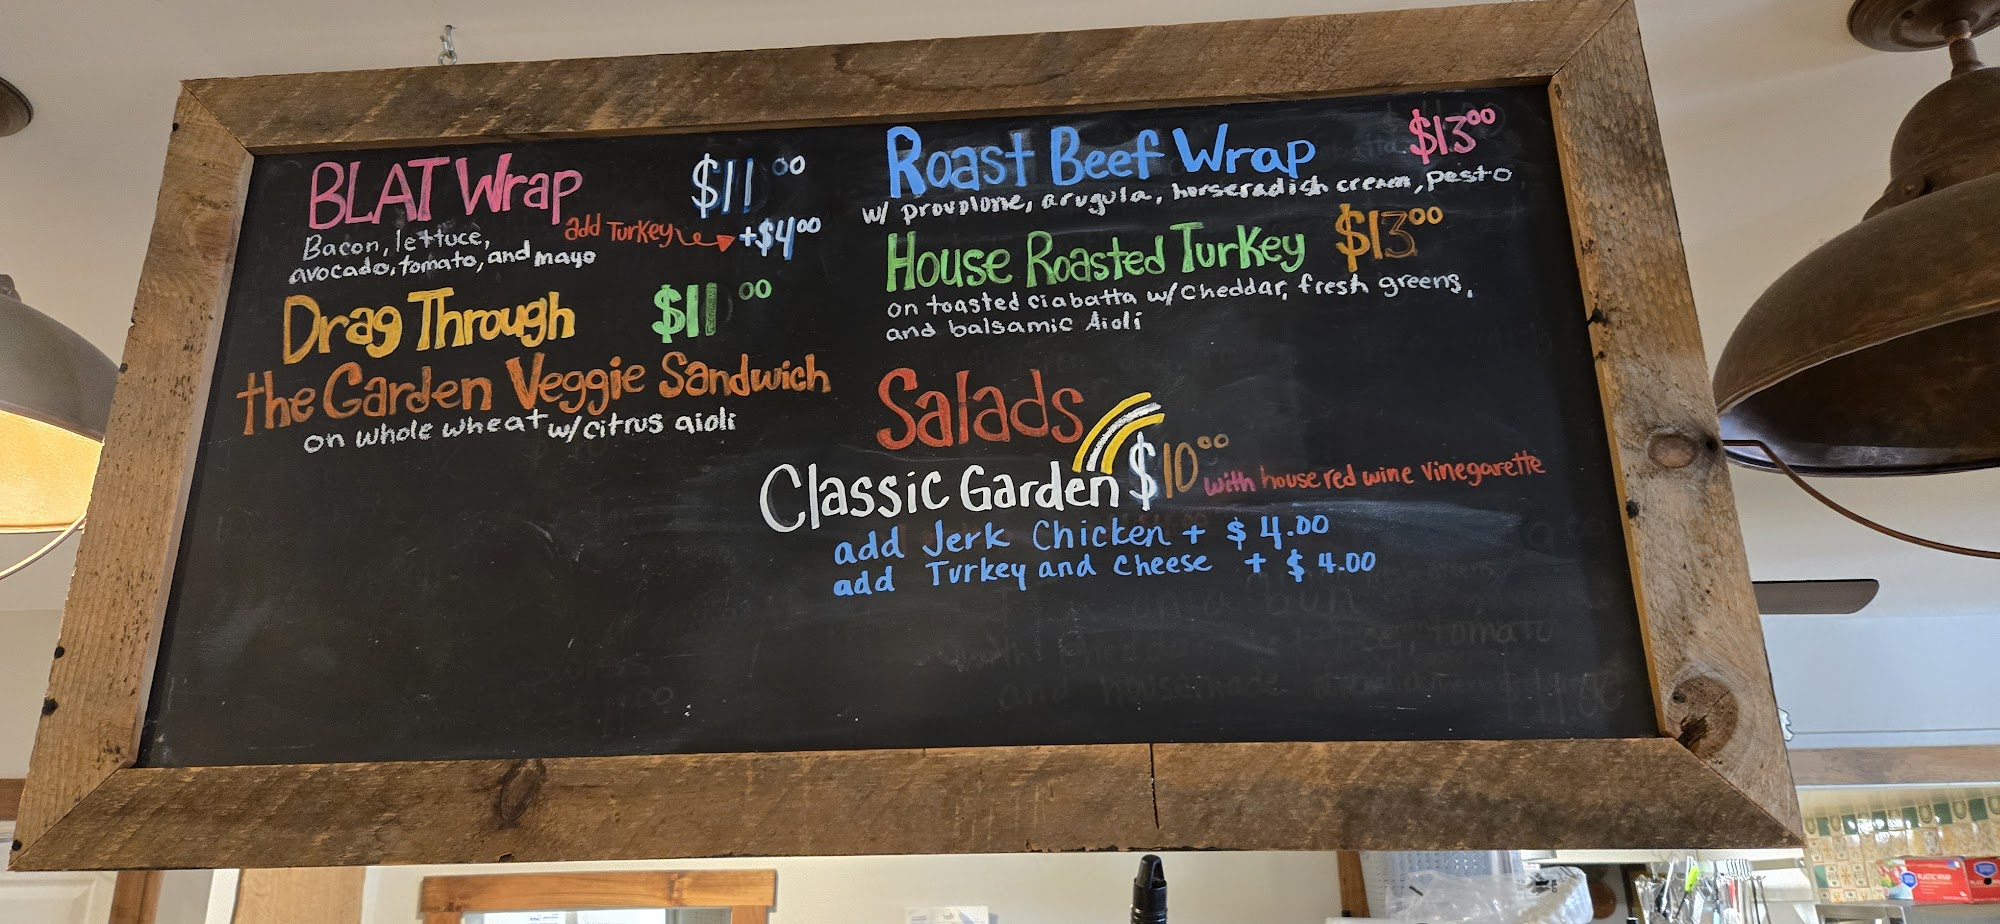 BLAT Wrap $11⁰⁰
add Turkey +$4⁰⁰
Bacon, lettuce,
avocado, tomato, and mayo
Drag Through $11⁰⁰
the Garden Veggie Sandwich
on whole wheat w/ citrus aioli
Roast Beef Wrap $13⁰⁰
w/ provolone, arugula, horseradish cream, pesto
House Roasted Turkey $13⁰⁰
on toasted ciabatta w/ cheddar, fresh greens,
and balsamic Aioli
Salads
Classic Garden $10⁰⁰ with house red wine vinegarette
add Jerk Chicken + $4.00
add Turkey and Cheese + $4.00